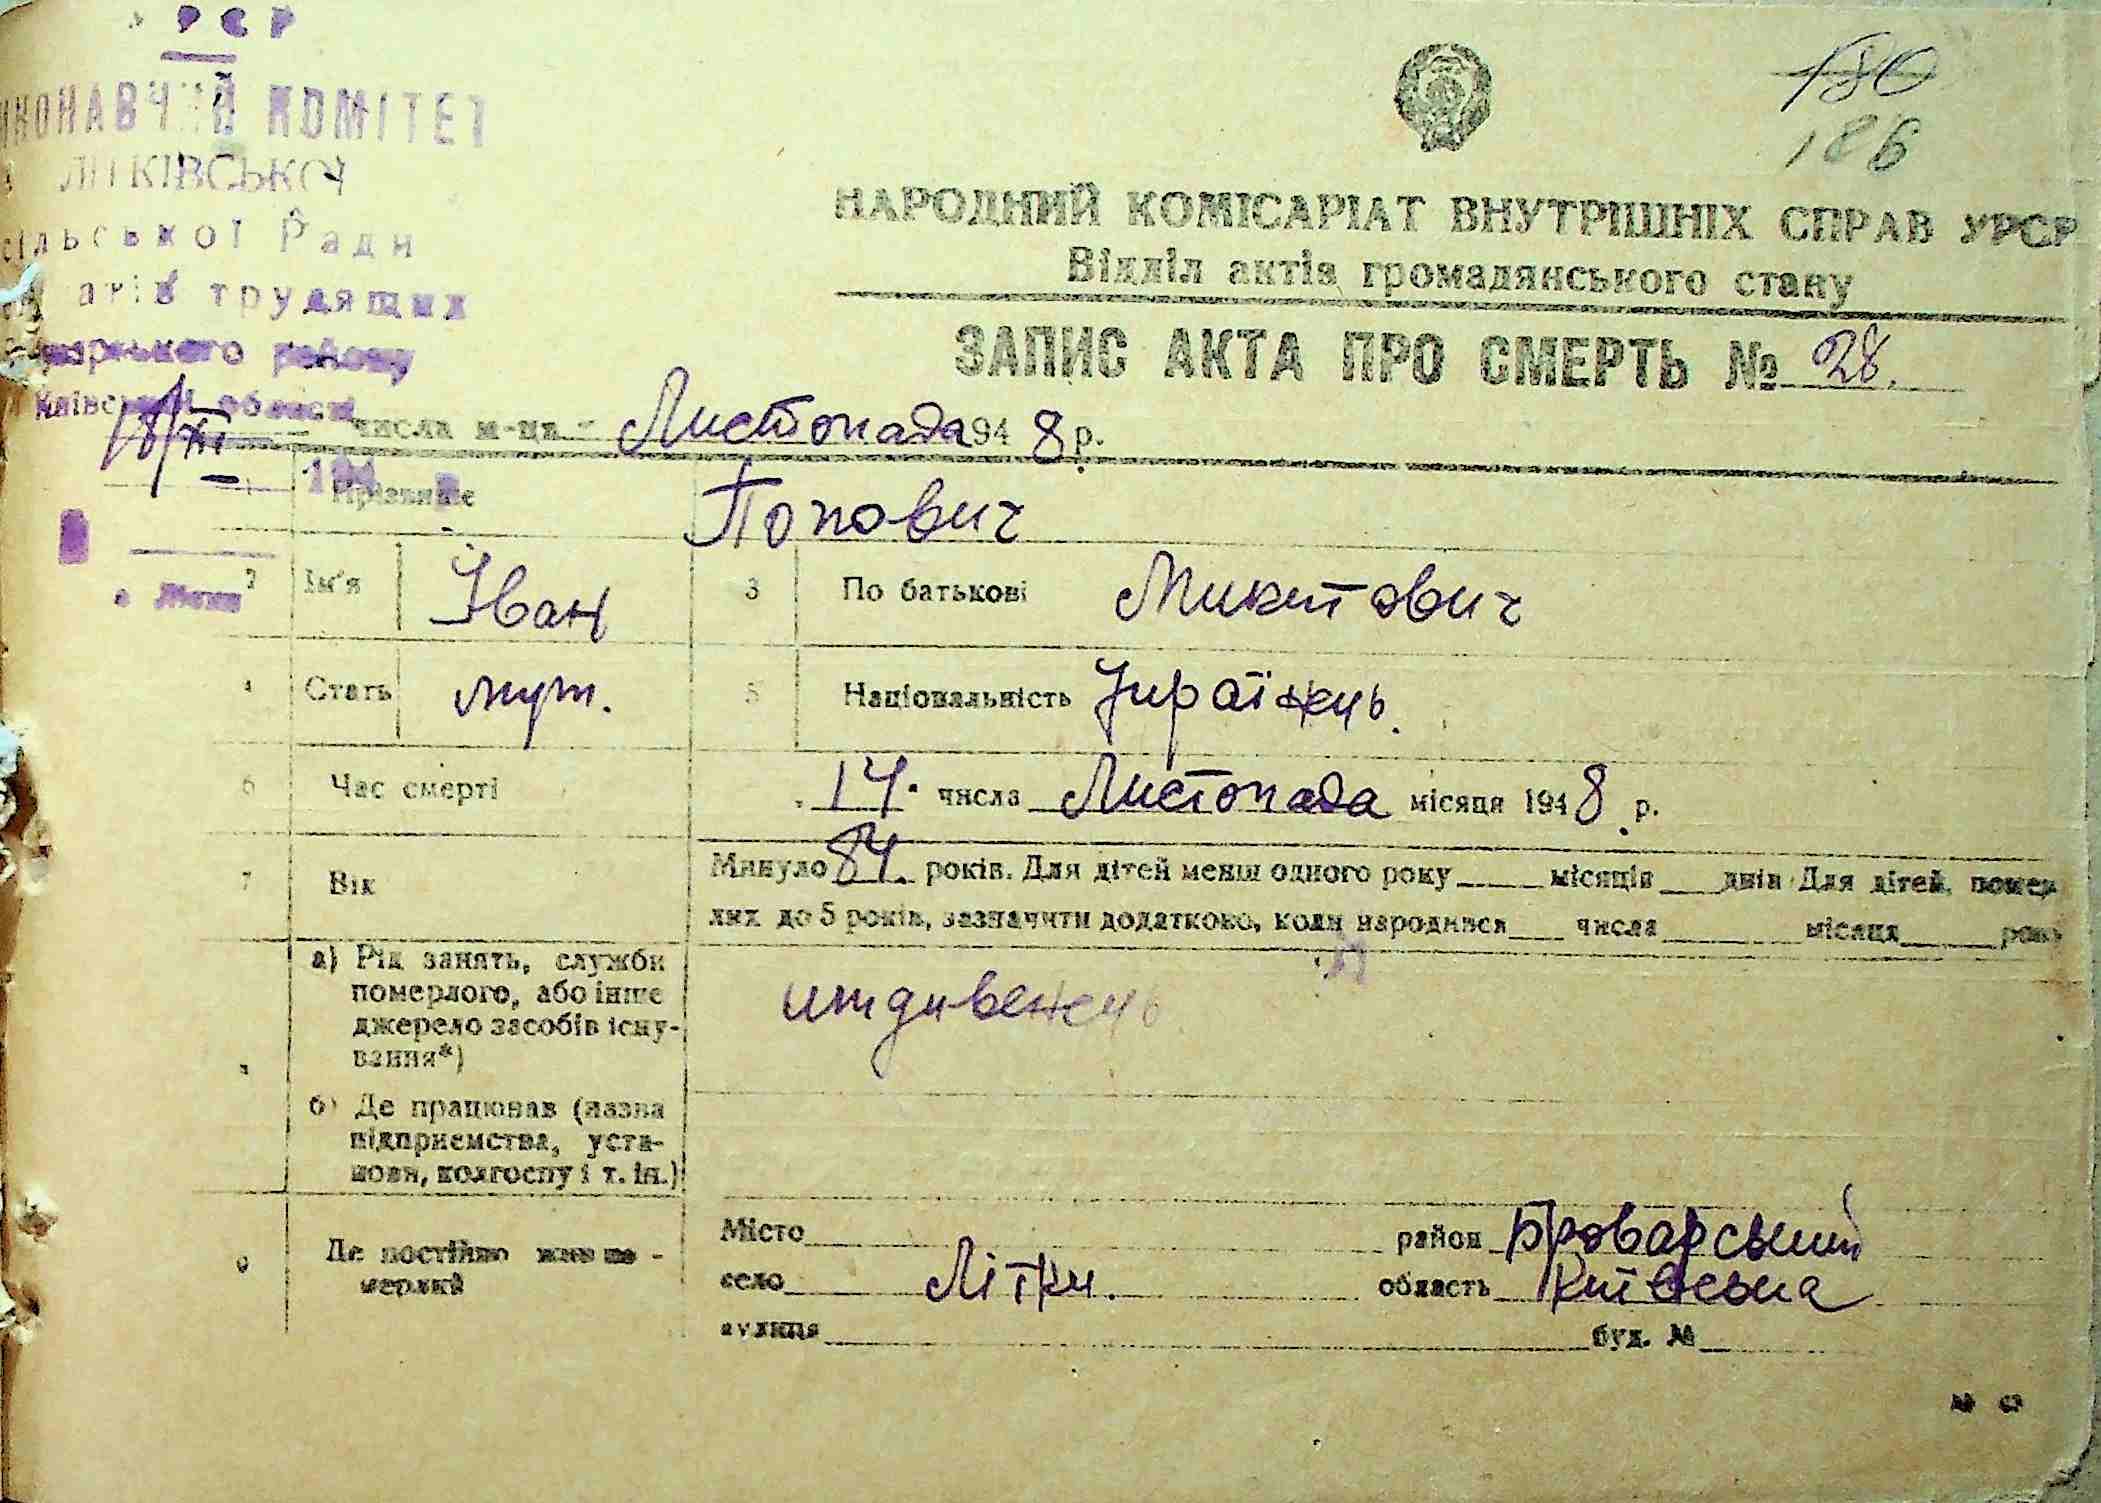 УРСР
ВИКОНАВЧИЙ КОМІТЕТ
ЛІТКІВСЬКОЇ
сільської Ради
трудящих
району
Київської області
18/XI
194 р
180
186
НАРОДНИЙ КОМІСАРІАТ ВНУТРІШНІХ СПРАВ УРСР
Відділ актів громадянського стану
ЗАПИС АКТА ПРО СМЕРТЬ № 28.
числа м-ця Листопада 1948 р.
1 Прізвище Попович
2 Ім'я Іван 3 По батькові Микитович
4 Стать муж. 5 Національність Українець.
6 Час смерті 14 числа Листопада місяця 1948 р.
7 Вік Минуло 84. років. Для дітей менш одного року місяців днів Для дітей, помер
лих до 5 років, зазначити додатково, коли народився числа місяця року
а) Рід занять, служби
померлого, або інше
джерело засобів існу-
вання*)
иждивенець
б) Де працював (назва
підприємства, уста-
нови, колгоспу і т. ін.)
9 Де постійно жив по-
мерлий
Місто район Броварський
село Літки. область Київська
вулиця буд. №